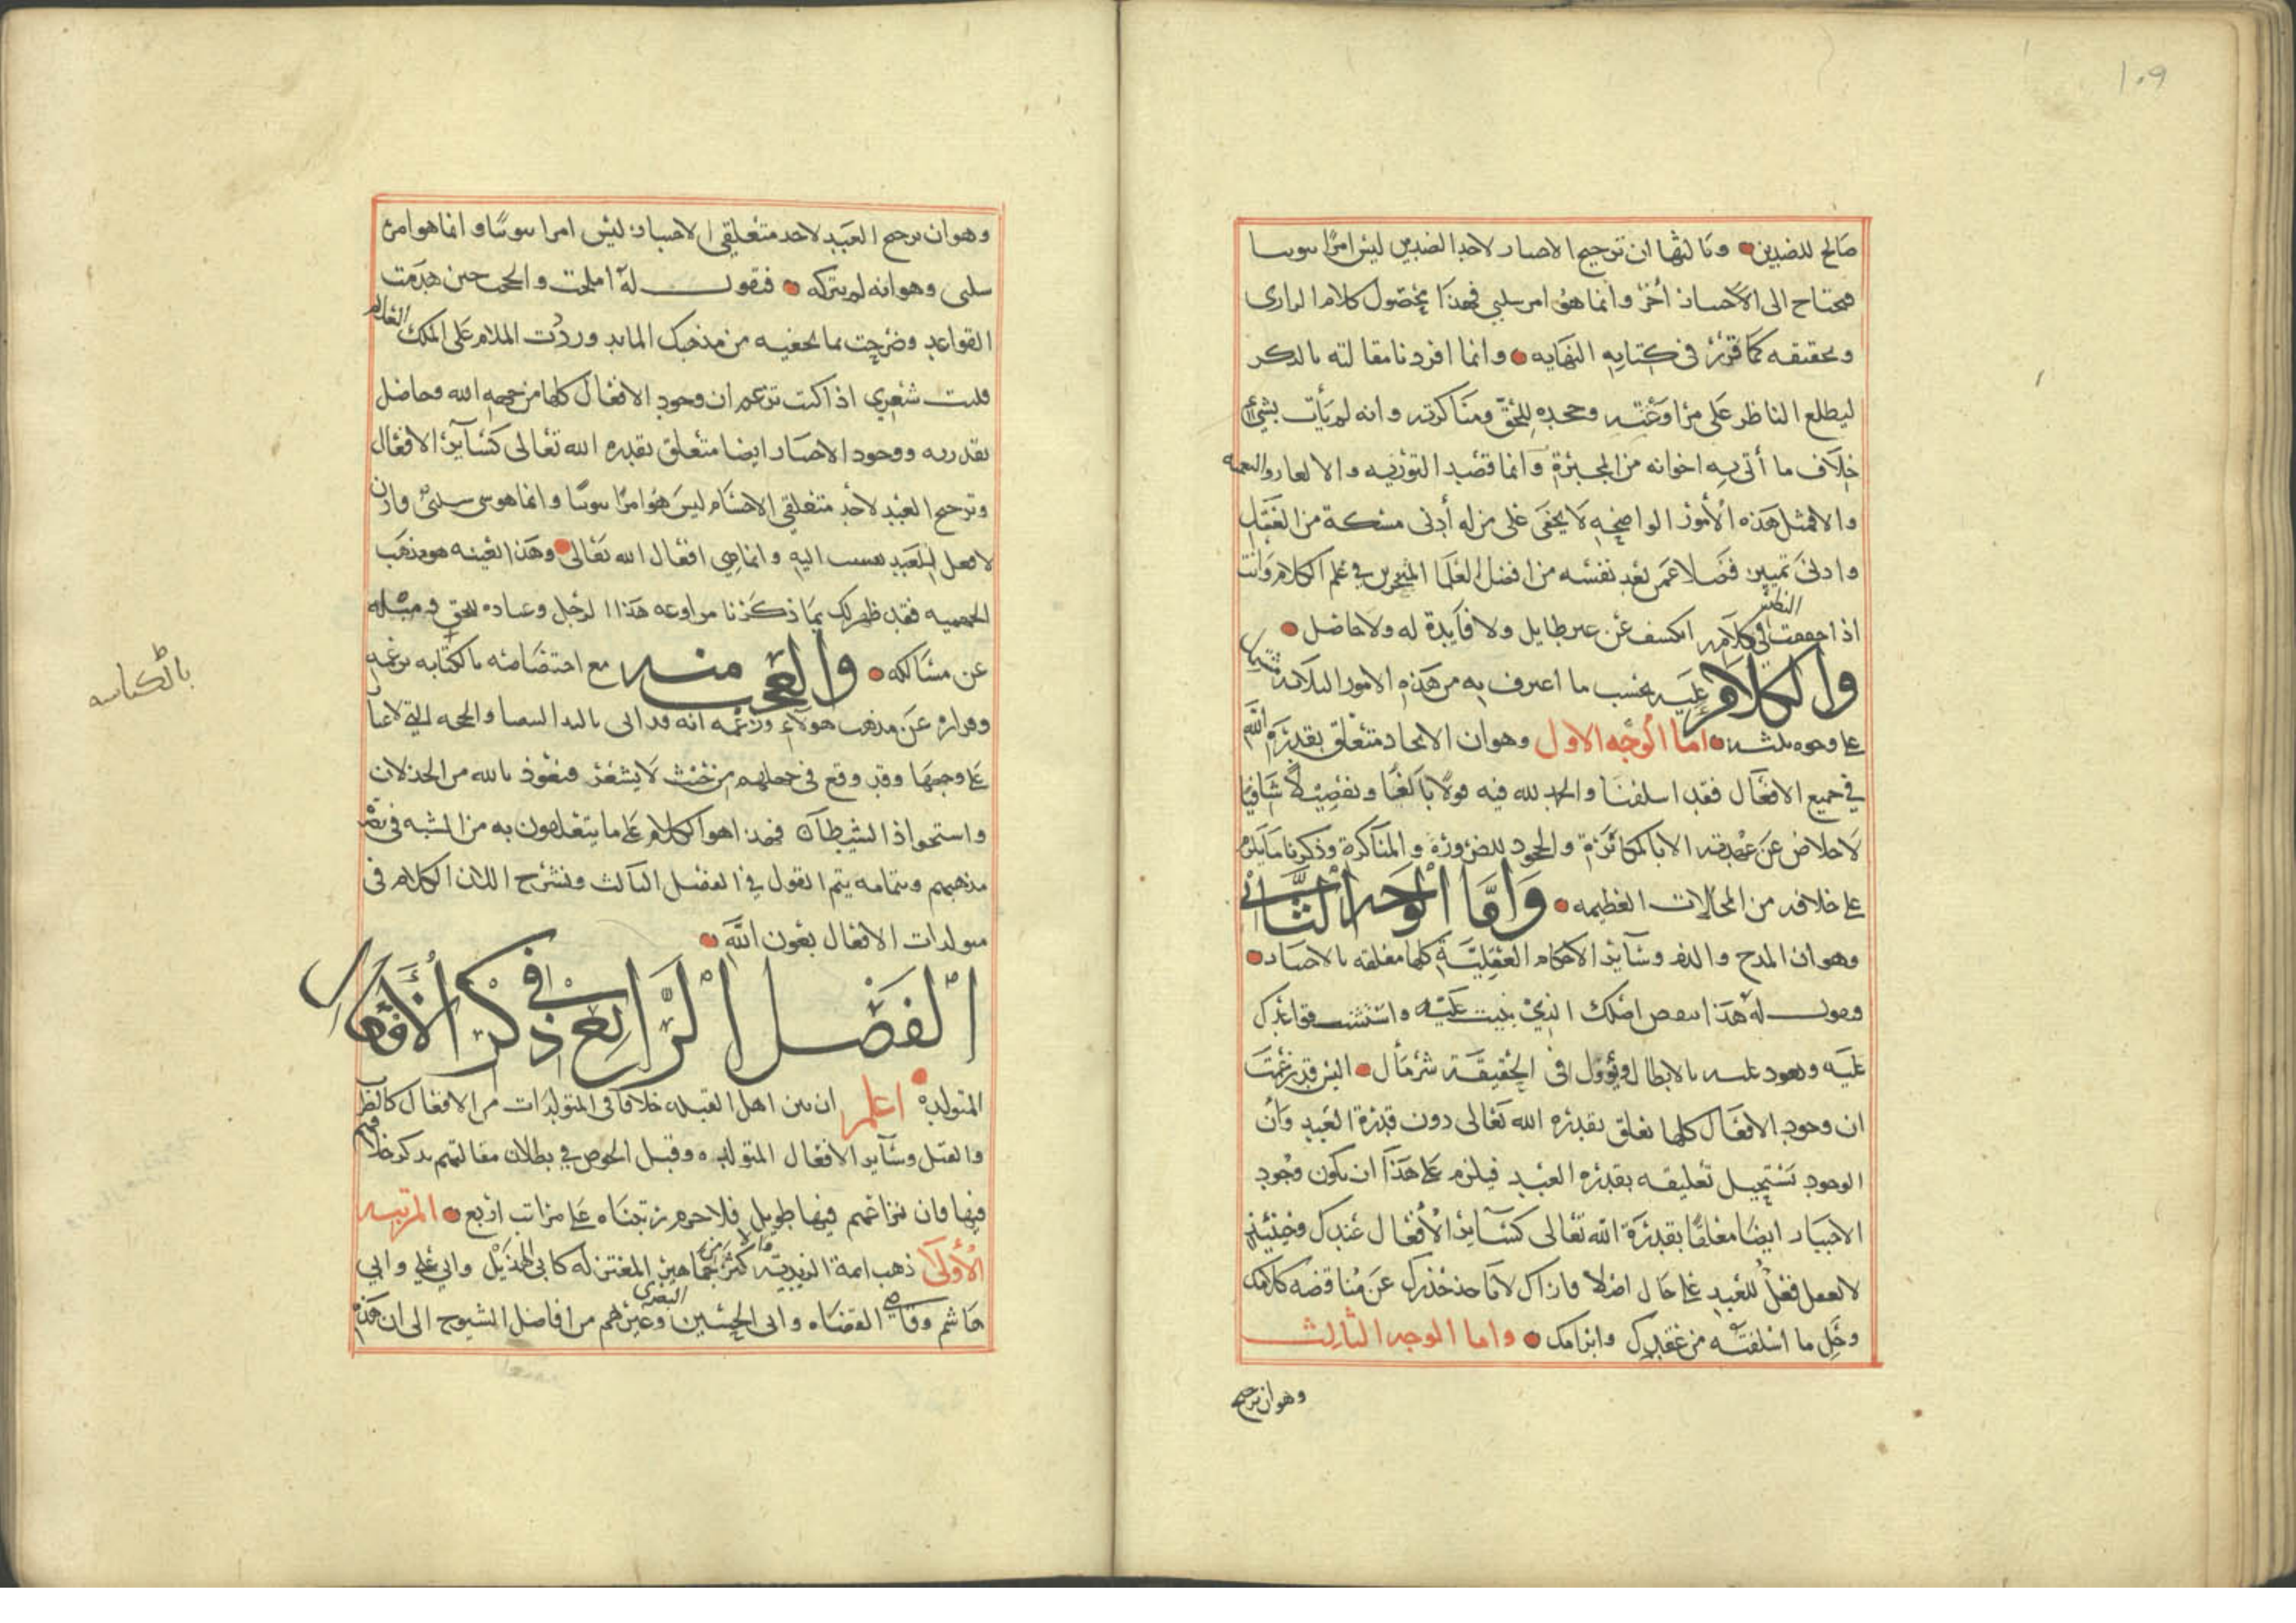 ١٠٩
صالح للضدين وثالثها ان ترجيح الاختيار لاحد الضدين ليس امرًا ثبوتيا
فيحتاج الى الاختيار آخر وانما هو امر سلبي فهذا محصول كلام الرازي
وتحقيقه كما قرره في كتابه النهايه وانما افردنا مقالته بالذكر
ليطلع الناظر على مراوغته وجحده للحق ومناكرته وانه لم يأت بشيء
خلاف ما أتى به اخوانه من المجبرة وانما قصد التورية والالغاز والتعميه
والا فمثل هذه الأمور الواضحه لا يخفى على من له أدنى مسكة من العقل
وادنى تمييز فضلا عمن يعد نفسه من افضل العلما المتبحرين في علم الكلام وانت
اذا حققت النظر في كلامه انكشف عن غير طايل ولا فآيدة له ولا حاصل
والكلام عليه بحسب ما اعترف به من هذه الامور الثلاثه
على وجوه ثلثه اما الوجه الاول وهو ان الايجاد متعلق بقدرة الله
في جميع الافعال فقد اسلفنا والحمد لله فيه قولًا بالغًا وتفصيلًا شافيًا
لا خلاص عن عهدته الا بالمكابرة والجحود للضرورة والمناكرة وذكرنا ما يلزم
على خلافه من المحالات العظيمه واما الوجه الثاني
وهو ان المدح والذم وسآير الاحكام العقليّة كلها معلقه بالاختيار
فنقول له هذا ينقض اصلك الذي بنيت عليه واسست قواعدك
عليه ويعود عليه بالابطال ويؤول في الحقيقة شر مآل اليس قد زعمت
ان وجود الافعال كلها تعلق بقدره الله تعالى دون قدرة العبد وان
الوجود تستحيل تعليقه بقدره العبد فيلزم على هذا ان يكون وجود
الاختيار ايضا معلقًا بقدرة الله تعالى كسآير الأفعال عندك فحينئذ
لا يعقل فعل للعبد على حال اصلا فاراك لا تاخذ حذرك عن مناقضه كلامك
وحل ما اسلفته من عقدك وابرامك واما الوجه الثالث
وهو ان ترجيح
وهو ان ترجيح العبد لاحد متعلقي الاختيار ليس امرا ثبوتيًا وانما هو امر
سلبي وهو انه لم يتركه فنقول له املحت والحمت حين هدمت
القواعد وصرحت بما تخفيه من مذهبك المايد ورددت الملام على الملك العلام
فليت شعري اذا كنت تزعم ان وجود الافعال كلها من جهه الله وحاصل
بقدرته ووجود الاختيار ايضا متعلق بقدره الله تعالى كسآير الافعال
وترجيح العبد لأحد متعلقي الاختيار ليس هو امرًا ثبوتيًا وانما هو شي سلبيّ فاذن
لا فعل للعبد ينسب اليه وانما هي افعال الله تعالى وهذا بعينه هو مذهب
الجهميه فقد ظهر لك بما ذكرنا مراوغه هذا الرجل وعناده للحق وميله
عن مسالكه والعجب منه مع اختصاصه بالكتابه برعمه
وفراره عن مذهب هولآء وزعمه انه قد اتى باليد البيضا والحجه التي لا غبار
على وجهها وقد وقع في جهلهم من حيث لا يشعر فنعوذ بالله من الخذلان
واستحواذ الشيطان فهذا هو الكلام على ما يتعلقون به من الشبه في نصره
مذهبهم وبتمامه يتم القول في الفصل الثالث ونشرح اللان الكلام في
متولدات الافعال بعون الله
الفصل الرابع في ذكر الأفعال
المتولدة اعلم ان بين اهل القبله خلافًا في المتولدات من الافعال كالنظر
والقتل وسآير الافعال المتولده وقبل الخوض في بطلان مقالتهم نذكر خلافهم
فيها فان نزاعهم فيها طويل فلا جرم رتبناه على مراتب اربع المرتبه
الأولى ذهب ايمة الزيدية والاكثر من جماهير المعتزله كابي الهذيل وابي علي وابي
هاشم وقاضي القضاه وابي الحسين البصري وغيرهم من افاضل الشيوخ الى ان هذه
بالكتابه